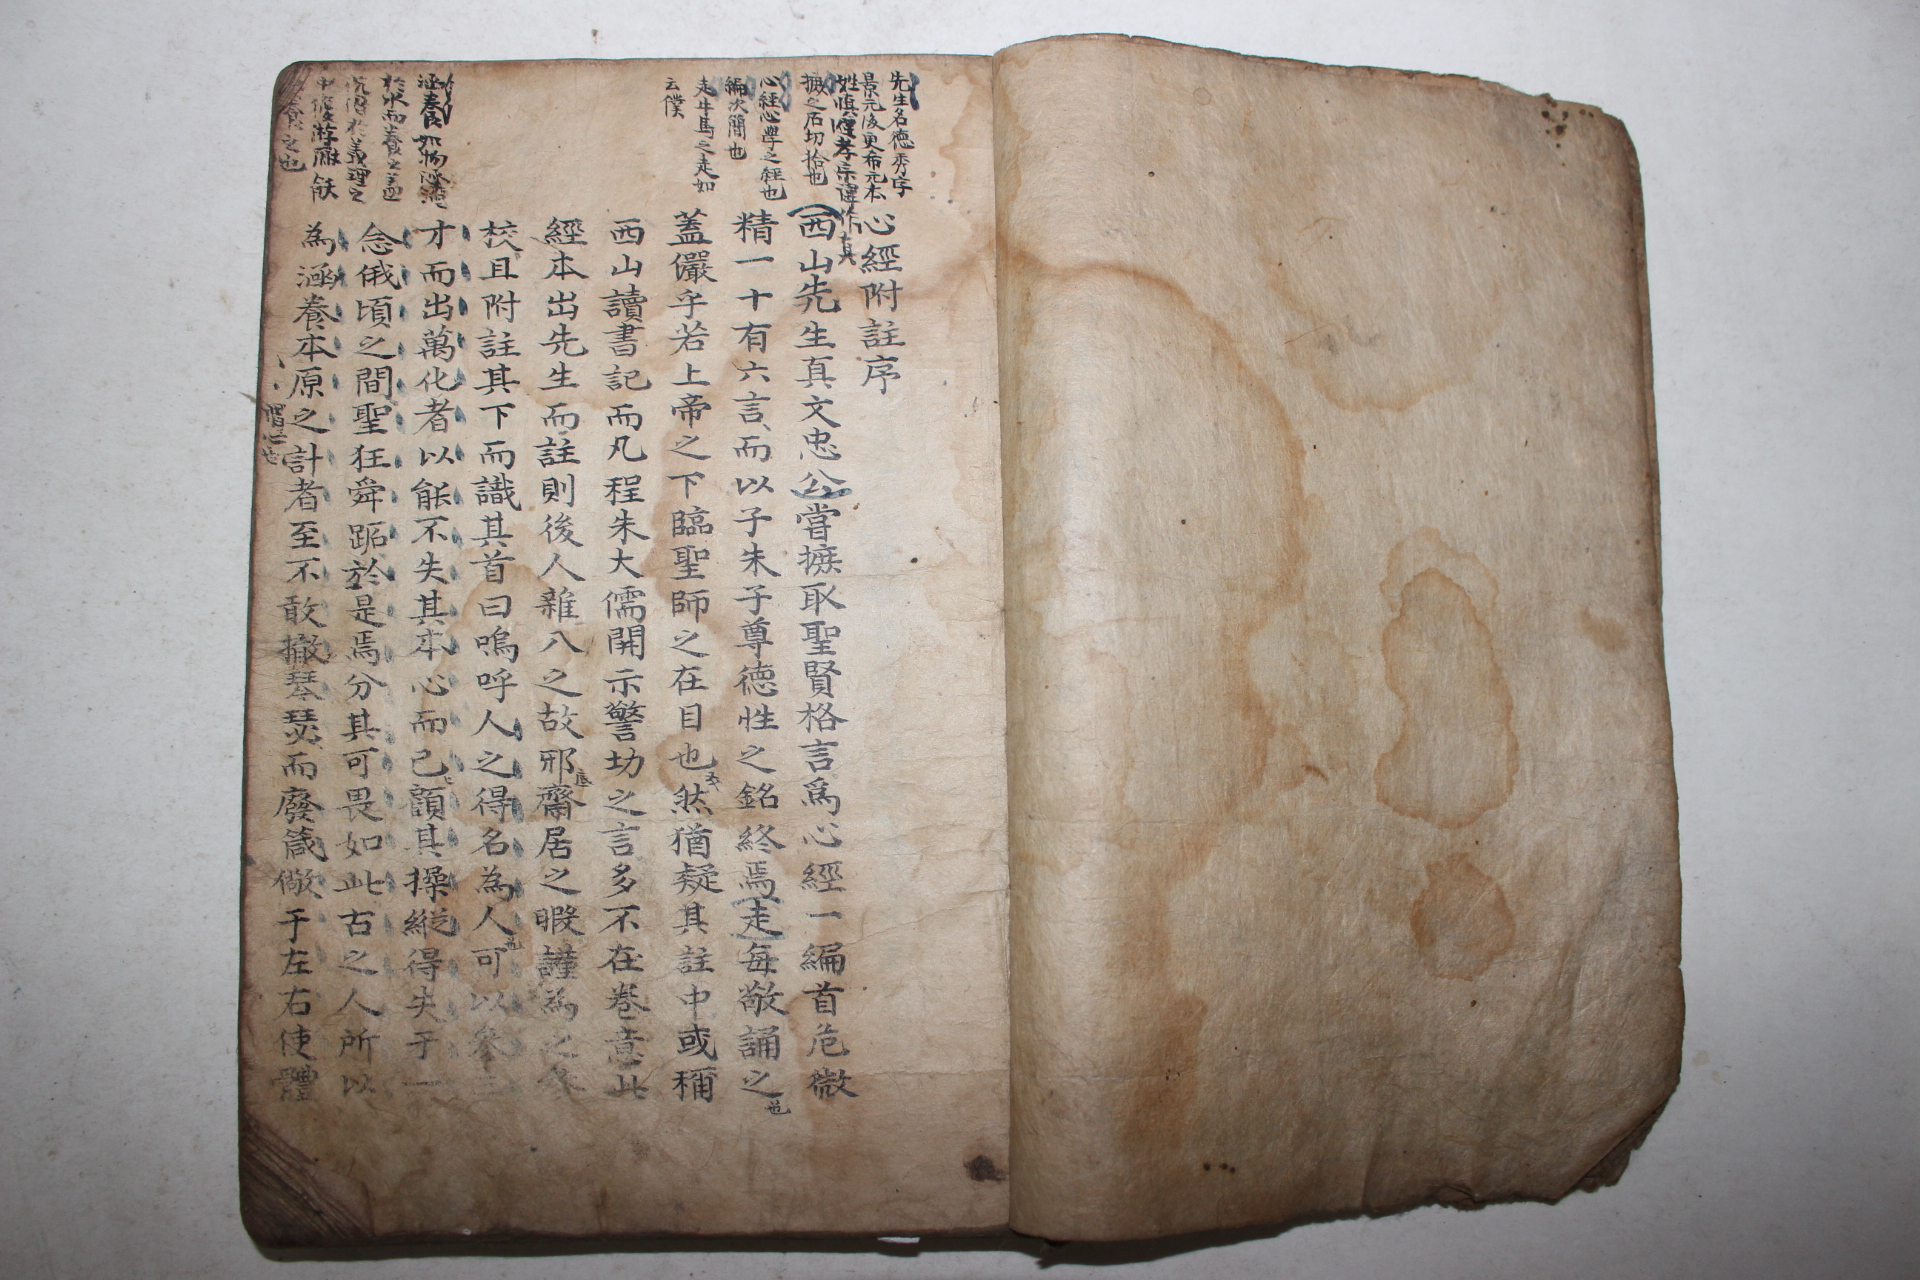 先生名德秀字
景元後更希元本
姓愼避孝宗諱作眞
摭之石切拾也
心經心學之經也
編次簡也
走牛馬之走如
云僕
心經附註序
西山先生真文忠公嘗摭取聖賢格言爲心經一編首危微
精一十有六言而以子朱子尊德性之銘終焉走每敬誦之
蓋儼乎若上帝之下臨聖師之在目也然猶疑其註中或稱
西山讀書記而凡程朱大儒開示警切之言多不在卷意此
經本出先生而註則後人雜入之故邪齋居之暇謹為之參
校且附註其下而識其首曰嗚呼人之得名為人可以參三
才而出萬化者以能不失其本心而已顧其操縱得失于一
念俄頃之間聖狂舜蹠於是焉分其可畏如此古之人所以
為涵養本原之計者至不敢撤琴瑟而廢箴儆于左右使體
涵養如物涵濡
於水而養之盖
義理之
中優游厭飫
養之也